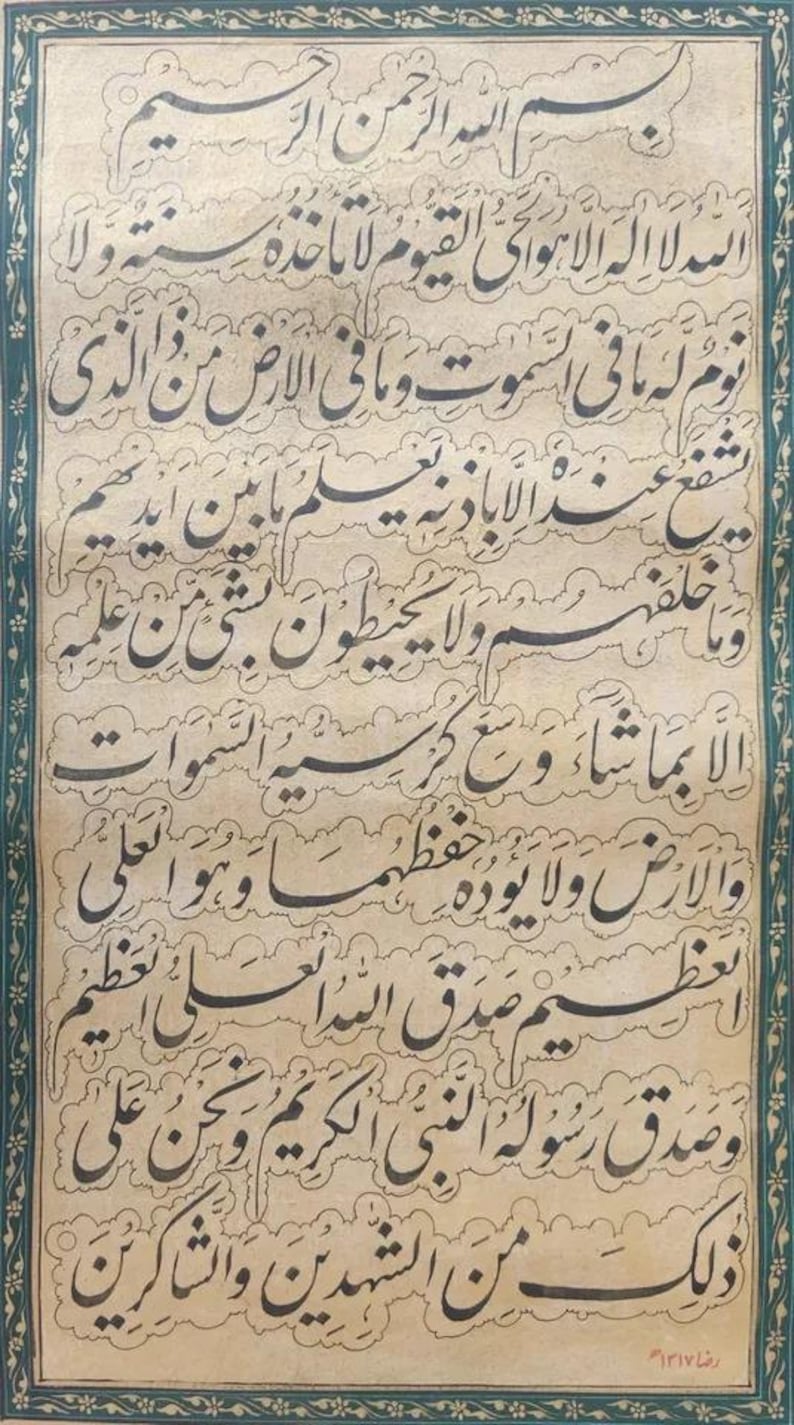 بِسْمِ اللهِ الرَّحْمٰنِ الرَّحِيْمِ
اللهُ لَا اِلٰهَ اِلَّا هُوَ الْحَیُّ الْقَيُّوْمُ لَا تَاْخُذُهٗ سِنَةٌ وَّلَا
نَوْمٌ لَهٗ مَا فِی السَّمٰوٰتِ وَمَا فِی الْاَرْضِ مَنْ ذَا الَّذِیْ
يَشْفَعُ عِنْدَهٗ اِلَّا بِاِذْنِهٖ يَعْلَمُ مَا بَيْنَ اَيْدِيْهِمْ
وَمَا خَلْفَهُمْ وَلَا يُحِيْطُوْنَ بِشَیْءٍ مِّنْ عِلْمِهٖ
اِلَّا بِمَا شَآءَ وَسِعَ كُرْسِيُّهُ السَّمٰوَاتِ
وَالْاَرْضَ وَلَا يَؤُدُهٗ حِفْظُهُمَا وَهُوَ الْعَلِیُّ
الْعَظِيْمُ صَدَقَ اللهُ الْعَلِیُّ الْعَظِيْمُ
وَصَدَقَ رَسُوْلُهُ النَّبِیُّ الْكَرِيْمُ وَنَحْنُ عَلٰی
ذٰلِكَ مِنَ الشّٰهِدِيْنَ وَالشَّاكِرِيْنَ
رضا ۱۳۱۷